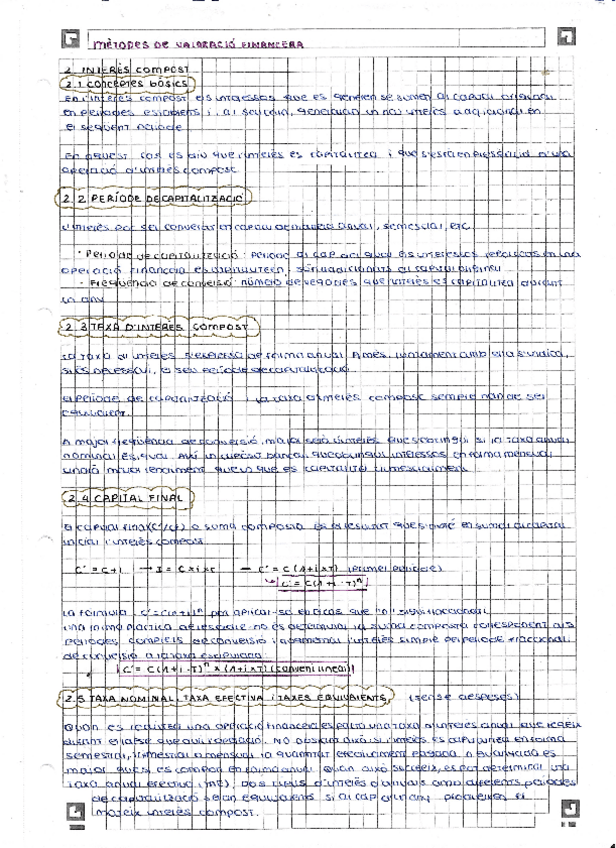 MÈTODES DE VALORACIÓ FINANCERA
2. INTERÈS COMPOST
2.1 CONCEPTES BÀSICS
En l'interès compost els interessos que es generen se sumen al capital original
en períodes establerts i, al seu torn, generaran un nou interès addicional en
el següent període.
En aquest cas es diu que l'interès es capitalitza i que s'està en presència d'una
operació d'interès compost.
2.2 PERÍODE DE CAPITALITZACIÓ
L'interès pot ser convertit en capital de manera anual, semestral, etc.
· Període de capitalització: període al cap del qual els interessos
operació financera es capitalitzen,
· Freqüència de conversió: número de vegades que l'interès es capitalitza durant
un any
2.3 TAXA D'INTERÈS COMPOST
La taxa d'interès s'expressa de forma anual. A més, juntament amb ella s'indica,
si és necessari, el seu període de capitalització.
El període de capitalització i la taxa d'interès compost sempre han de ser
equivalents.
A major freqüència de conversió, major serà l'interès que s'obtingui si la taxa anual
nominal és igual. Així un dipòsit bancari que obtingui interessos en forma mensual
tindrà major rendiment que un que es capitalitzi trimestralment.
2.4 CAPITAL FINAL
El capital final (C'/Cf) o suma composta és el resultat que s'obté en sumar al capital
inicial l'interès compost.
C' = C + I → I = C x i x T — C' = C (1 + i x T) (primer període)
↳ C' = C (1 + i · T)ⁿ
La fórmula C' = C (1 + i)ⁿ pot aplicar-se encara que "n" sigui fraccional.
suma composta corresponent als
períodes complets de conversió i l'interès simple pel període fraccional
de conversió a la taxa estipulada:
C' = C (1 + i · T)ⁿ x (1 + i x T) (conveni lineal)
2.5 TAXA NOMINAL, TAXA EFECTIVA I TAXES EQUIVALENTS (sense despeses)
Quan es realitza una operació financera es pacta una taxa d'interès anual que regeix
durant el que duri l'operació. No obstant això, si l'interès es capitalitza en forma
semestral, trimestral o mensual, la quantitat efectivament pagada o guanyada és
major que si es compon en forma anual. Quan això succeeix, es pot determinar una
taxa anual efectiva (TAE). Dos tipus d'interès anuals amb diferents períodes
de capitalització seran equivalents si al cap d'un any produeixen el
mateix interès compost.